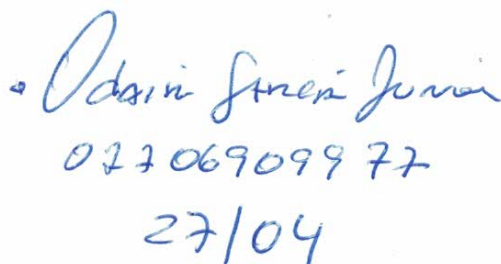 Odair Garcia Junior
07706909977
27/04